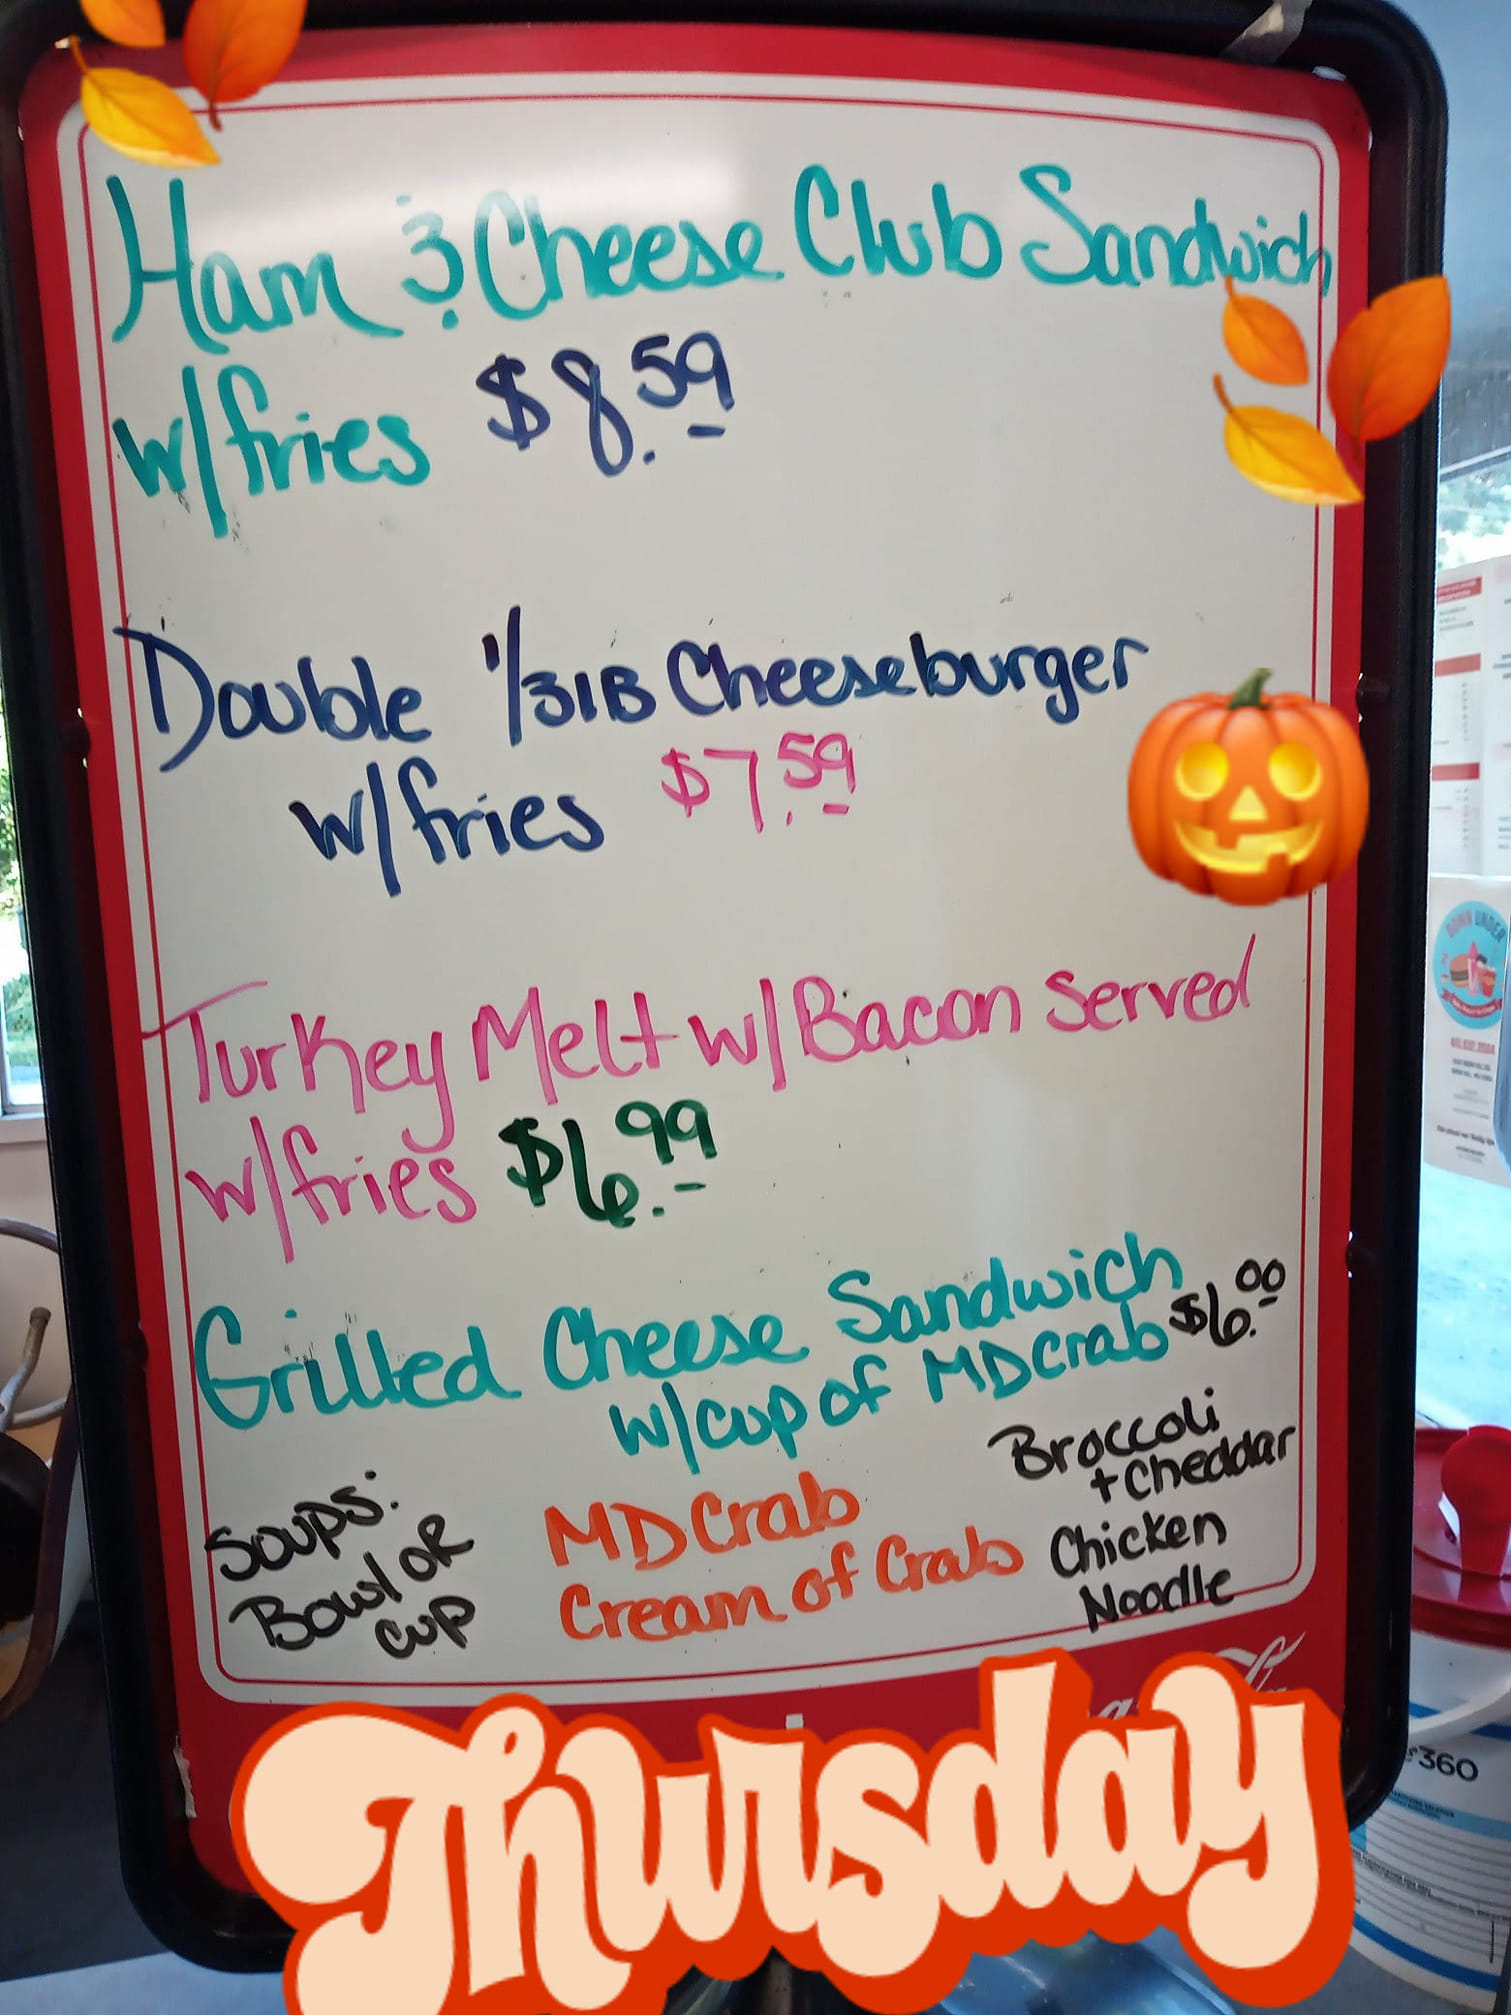 Ham & Cheese Club Sandwich
w/fries $8.59
Double 1/3lB Cheeseburger
w/fries $7.59
Turkey Melt w/Bacon Served
w/fries $6.99
Grilled Cheese Sandwich
w/cup of MD Crab $6.00
Soups:
Bowl OR
cup
MD Crab
Cream of Crab
Broccoli
+ Cheddar
Chicken
Noodle
Thursday
DOWN UNDER
360